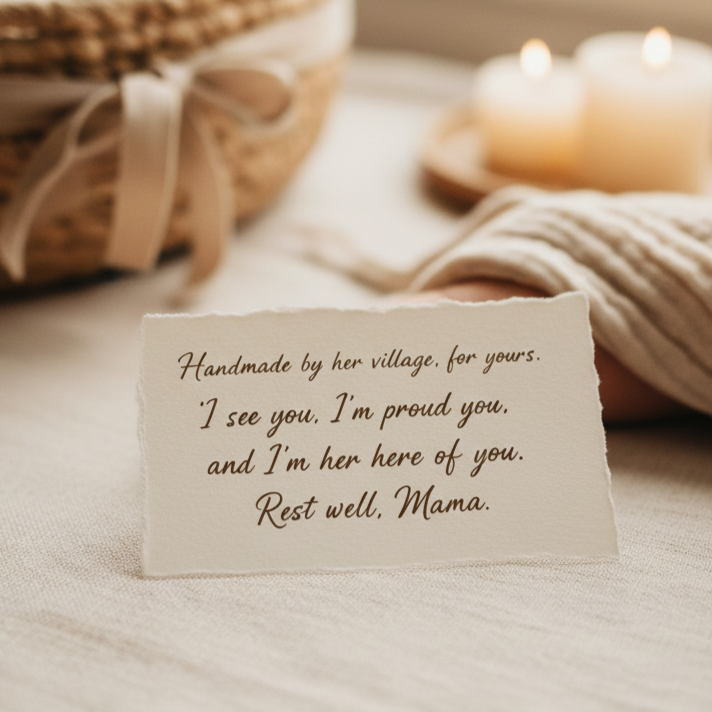 Handmade by her village, for yours.
'I see you, I'm proud you,
and I'm her here of you.
Rest well, Mama.